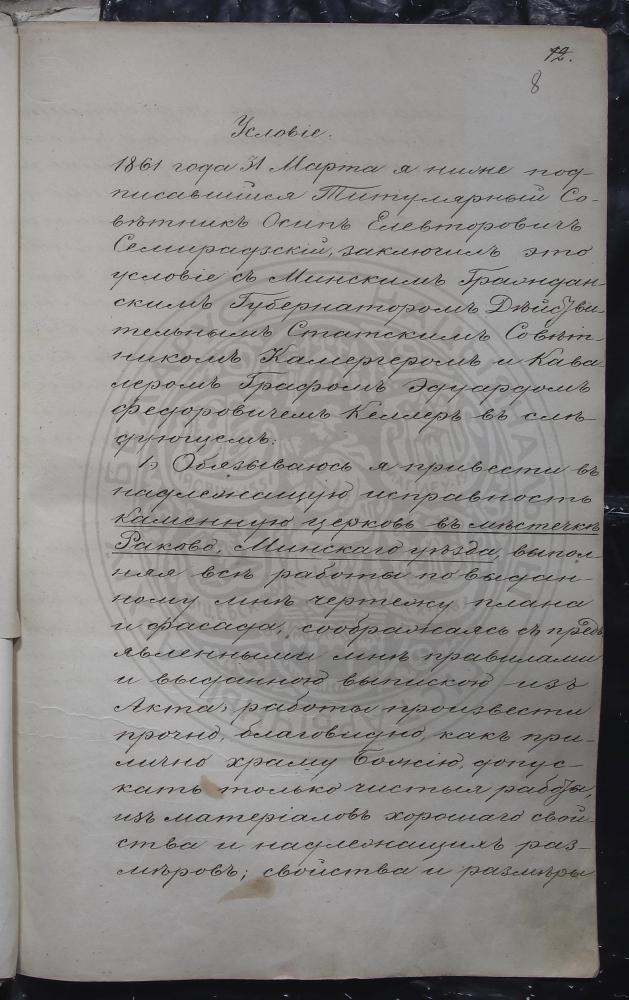 12.
8
Условіе.
1861 года 31 Марта я ниже под-
писавшійся Титулярный Со-
вѣтникъ Осипъ Елевторовичъ
Семирадзскій, заключилъ это
условіе съ Минскимъ Граждан-
скимъ Губернаторомъ Дѣйстви-
тельнымъ Статскимъ Совѣт-
никомъ Камергеромъ и Кава-
леромъ Графомъ Эдуардомъ
Федоровичемъ Келлеръ въ слѣ-
дующемъ:
1, Обязываюсь я привести въ
надлежащую исправность
каменную церковь въ мѣстечкѣ
Раково, Минскаго уѣзда, выпол-
няя всѣ работы по выдан-
ному мнѣ чертежу плана
и фасада, соображаясь съ предъ
явленными мнѣ правилами
и выданною выпискою изъ
Акта, работы произвести
прочно, благовидно, какъ при-
лично храму Божію, допус-
кать только чистыя работы,
изъ матеріаловъ хорошаго свой-
ства и надлежащихъ раз-
мѣровъ; свойства и размѣры